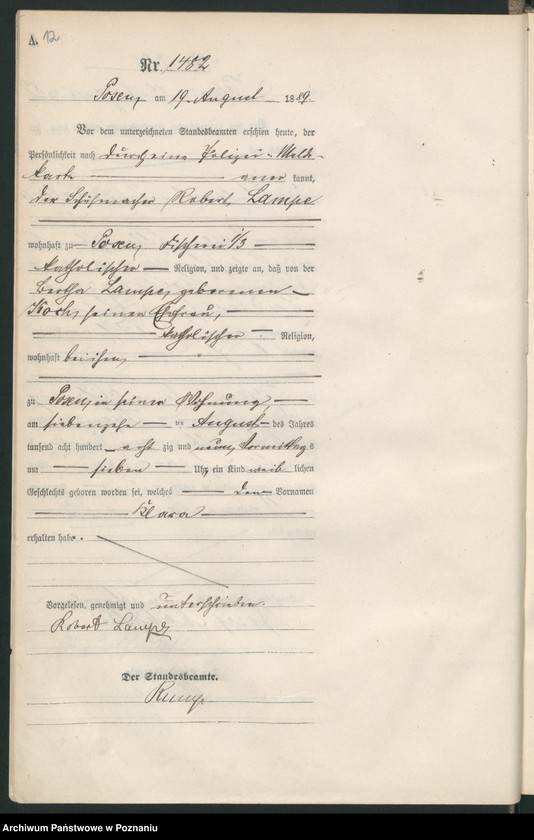 A. 12
Nr. 1482
Posen, am 19 August 1889.
Vor dem unterzeichneten Standesbeamten erschien heute, der
Persönlichkeit nach durch eine Polizei-Melde-
karte aner kannt,
der Schuhmacher Robert Lampe
wohnhaft zu Posen, Fischerei 1/3
katholischer Religion, und zeigte an, daß von der
Bertha Lampe, geborenen
Koch, seiner Ehefrau,
katholischer Religion,
wohnhaft bei ihm,
zu Posen, in seiner Wohnung,
am siebenzehn ten August des Jahres
tausend acht hundert acht zig und neun, Vormittags
um sieben Uhr, ein Kind weib lichen
Geschlechts geboren worden sei, welches den Vornamen
Klara
erhalten habe.
Vorgelesen, genehmigt und unterschrieben
Robert Lampe
Der Standesbeamte.
Archiwum Państwowe w Poznaniu